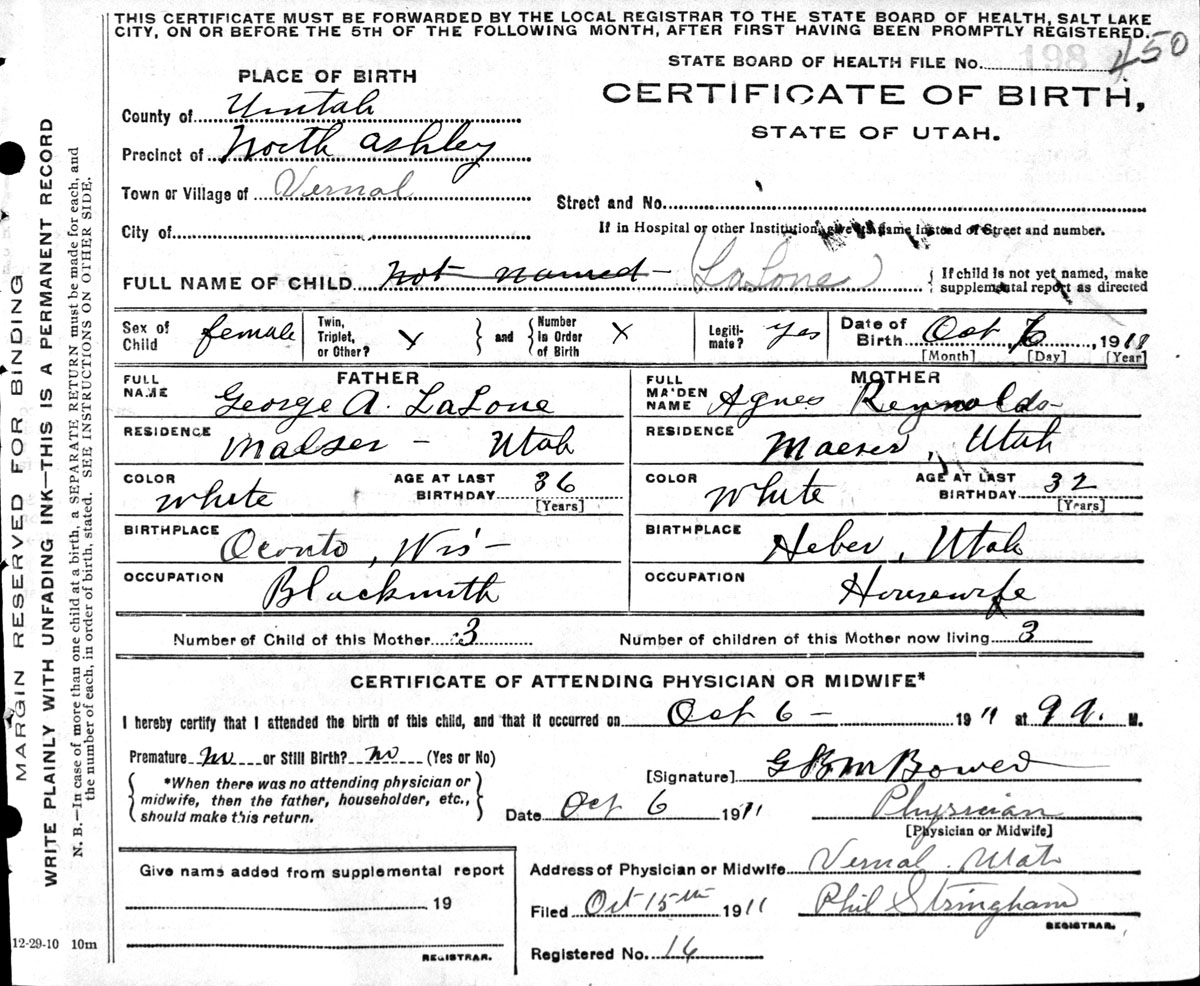 THIS CERTIFICATE MUST BE FORWARDED BY THE LOCAL REGISTRAR TO THE STATE BOARD OF HEALTH, SALT LAKE
CITY, ON OR BEFORE THE 5TH OF THE FOLLOWING MONTH, AFTER FIRST HAVING BEEN PROMPTLY REGISTERED.
450
STATE BOARD OF HEALTH FILE No. 198
PLACE OF BIRTH
CERTIFICATE OF BIRTH,
STATE OF UTAH.
County of Uintah
Precinct of North Ashley
Town or Village of Vernal
Street and No.
City of
If in Hospital or other Institution, give its name instead of Street and number.
FULL NAME OF CHILD Not named - (LaLone)
If child is not yet named, make
supplemental report as directed
Sex of Child female
Twin, Triplet, or Other? X
and
Number in Order of Birth X
Legitimate? Yes
Date of Birth Oct 6, 1911
[Month] [Day] [Year]
FATHER
FULL NAME George A. LaLone
RESIDENCE Maeser - Utah
COLOR White
AGE AT LAST BIRTHDAY 36
[Years]
BIRTHPLACE Oconto, Wis -
OCCUPATION Blacksmith
MOTHER
FULL MAIDEN NAME Agnes Reynolds
RESIDENCE Maeser, Utah
COLOR White
AGE AT LAST BIRTHDAY 32
[Years]
BIRTHPLACE Heber, Utah
OCCUPATION Housewife
Number of Child of this Mother 3
Number of children of this Mother now living 3
CERTIFICATE OF ATTENDING PHYSICIAN OR MIDWIFE*
I hereby certify that I attended the birth of this child, and that it occurred on Oct 6 - 1911 at 9 a. M.
Premature no or Still Birth? no (Yes or No)
*When there was no attending physician or
midwife, then the father, householder, etc.,
should make this return.
[Signature]
Date Oct 6 1911
Physician
[Physician or Midwife]
Address of Physician or Midwife Vernal Utah
Filed Oct 15th 1911 Phil Stringham
REGISTRAR.
Registered No. 16
Give name added from supplemental report
19
REGISTRAR.
12-29-10 10m
MARGIN RESERVED FOR BINDING
WRITE PLAINLY WITH UNFADING INK—THIS IS A PERMANENT RECORD
N. B.—In case of more than one child at a birth, a SEPARATE RETURN must be made for each, and
the number of each, in order of birth, stated. SEE INSTRUCTIONS ON OTHER SIDE.